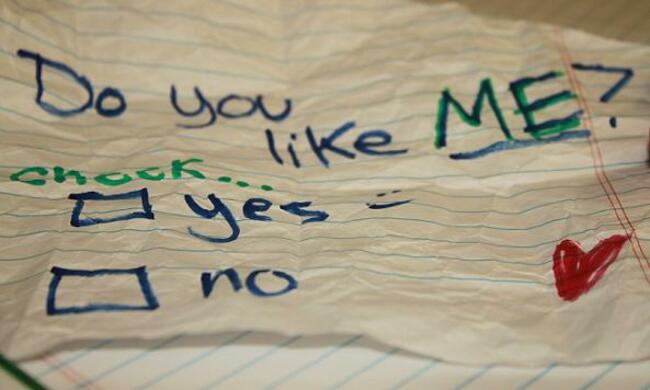 Do you
like ME?
check...
yes :)
no